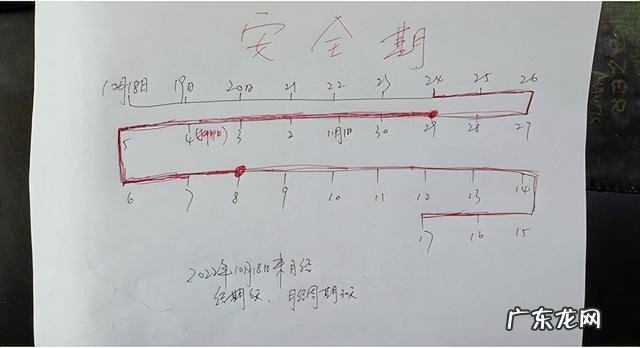 安全期
10月18日 19日 20日 21 22 23 24 25 26
5 4(排卵日) 3 2 11月1日 30 29 28 27
6 7 8 9 10 11 12 13 14
17 16 15
2022年10月18日来月经
经期6天、月经周期30天
广东龙网